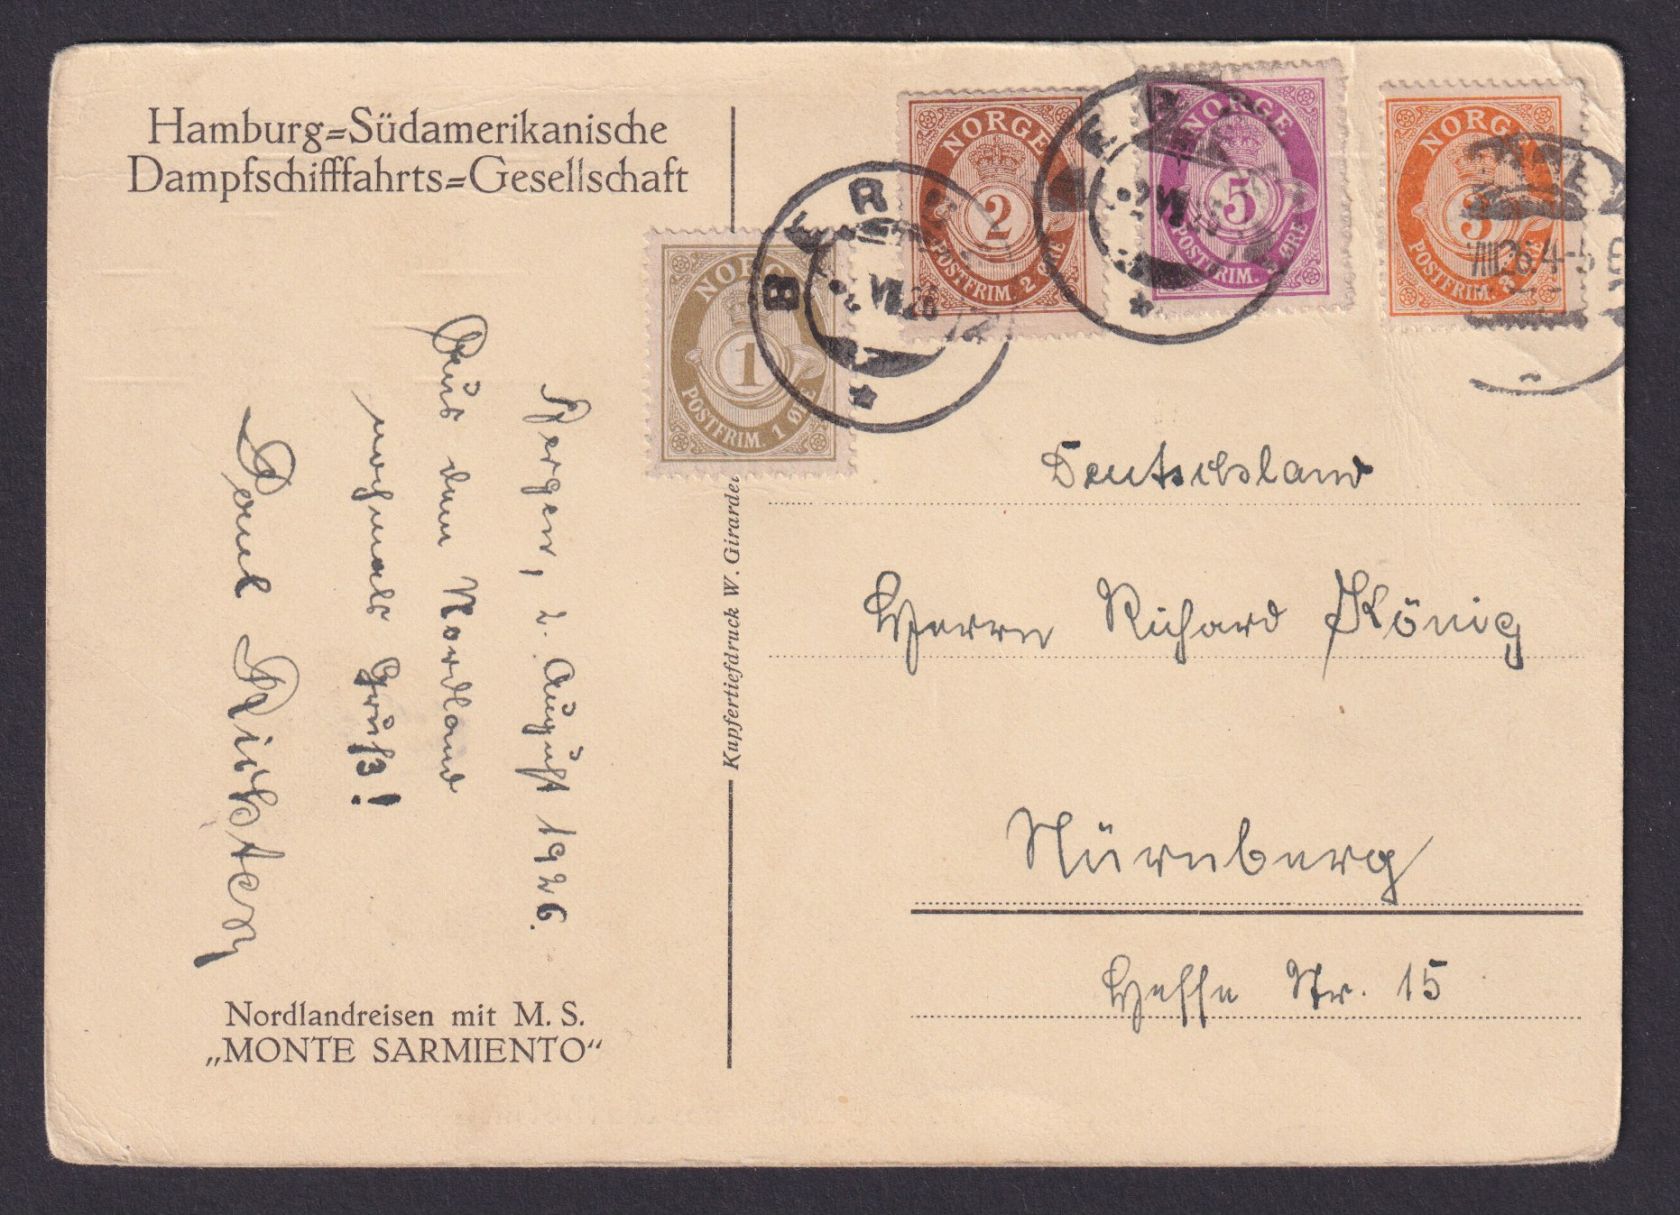 Hamburg=Südamerikanische
Dampfschifffahrts=Gesellschaft
Bergen, 2. August 1926.
Aus dem Nordland
nochmals Gruß!
Paul Richter
Nordlandreisen mit M. S.
„MONTE SARMIENTO“
Kupfertiefdruck W. Girardet
NORGE
1
POSTFRIM. 1 ØRE
NORGE
2
POSTFRIM. 2 ØRE
NORGE
5
POSTFRIM. 5 ØRE
NORGE
3
POSTFRIM. 3 ØRE
BER
VIII.26
VIII 26.4-5 E
Deutschland
Herrn Richard König
Nürnberg
Hesse Str. 15